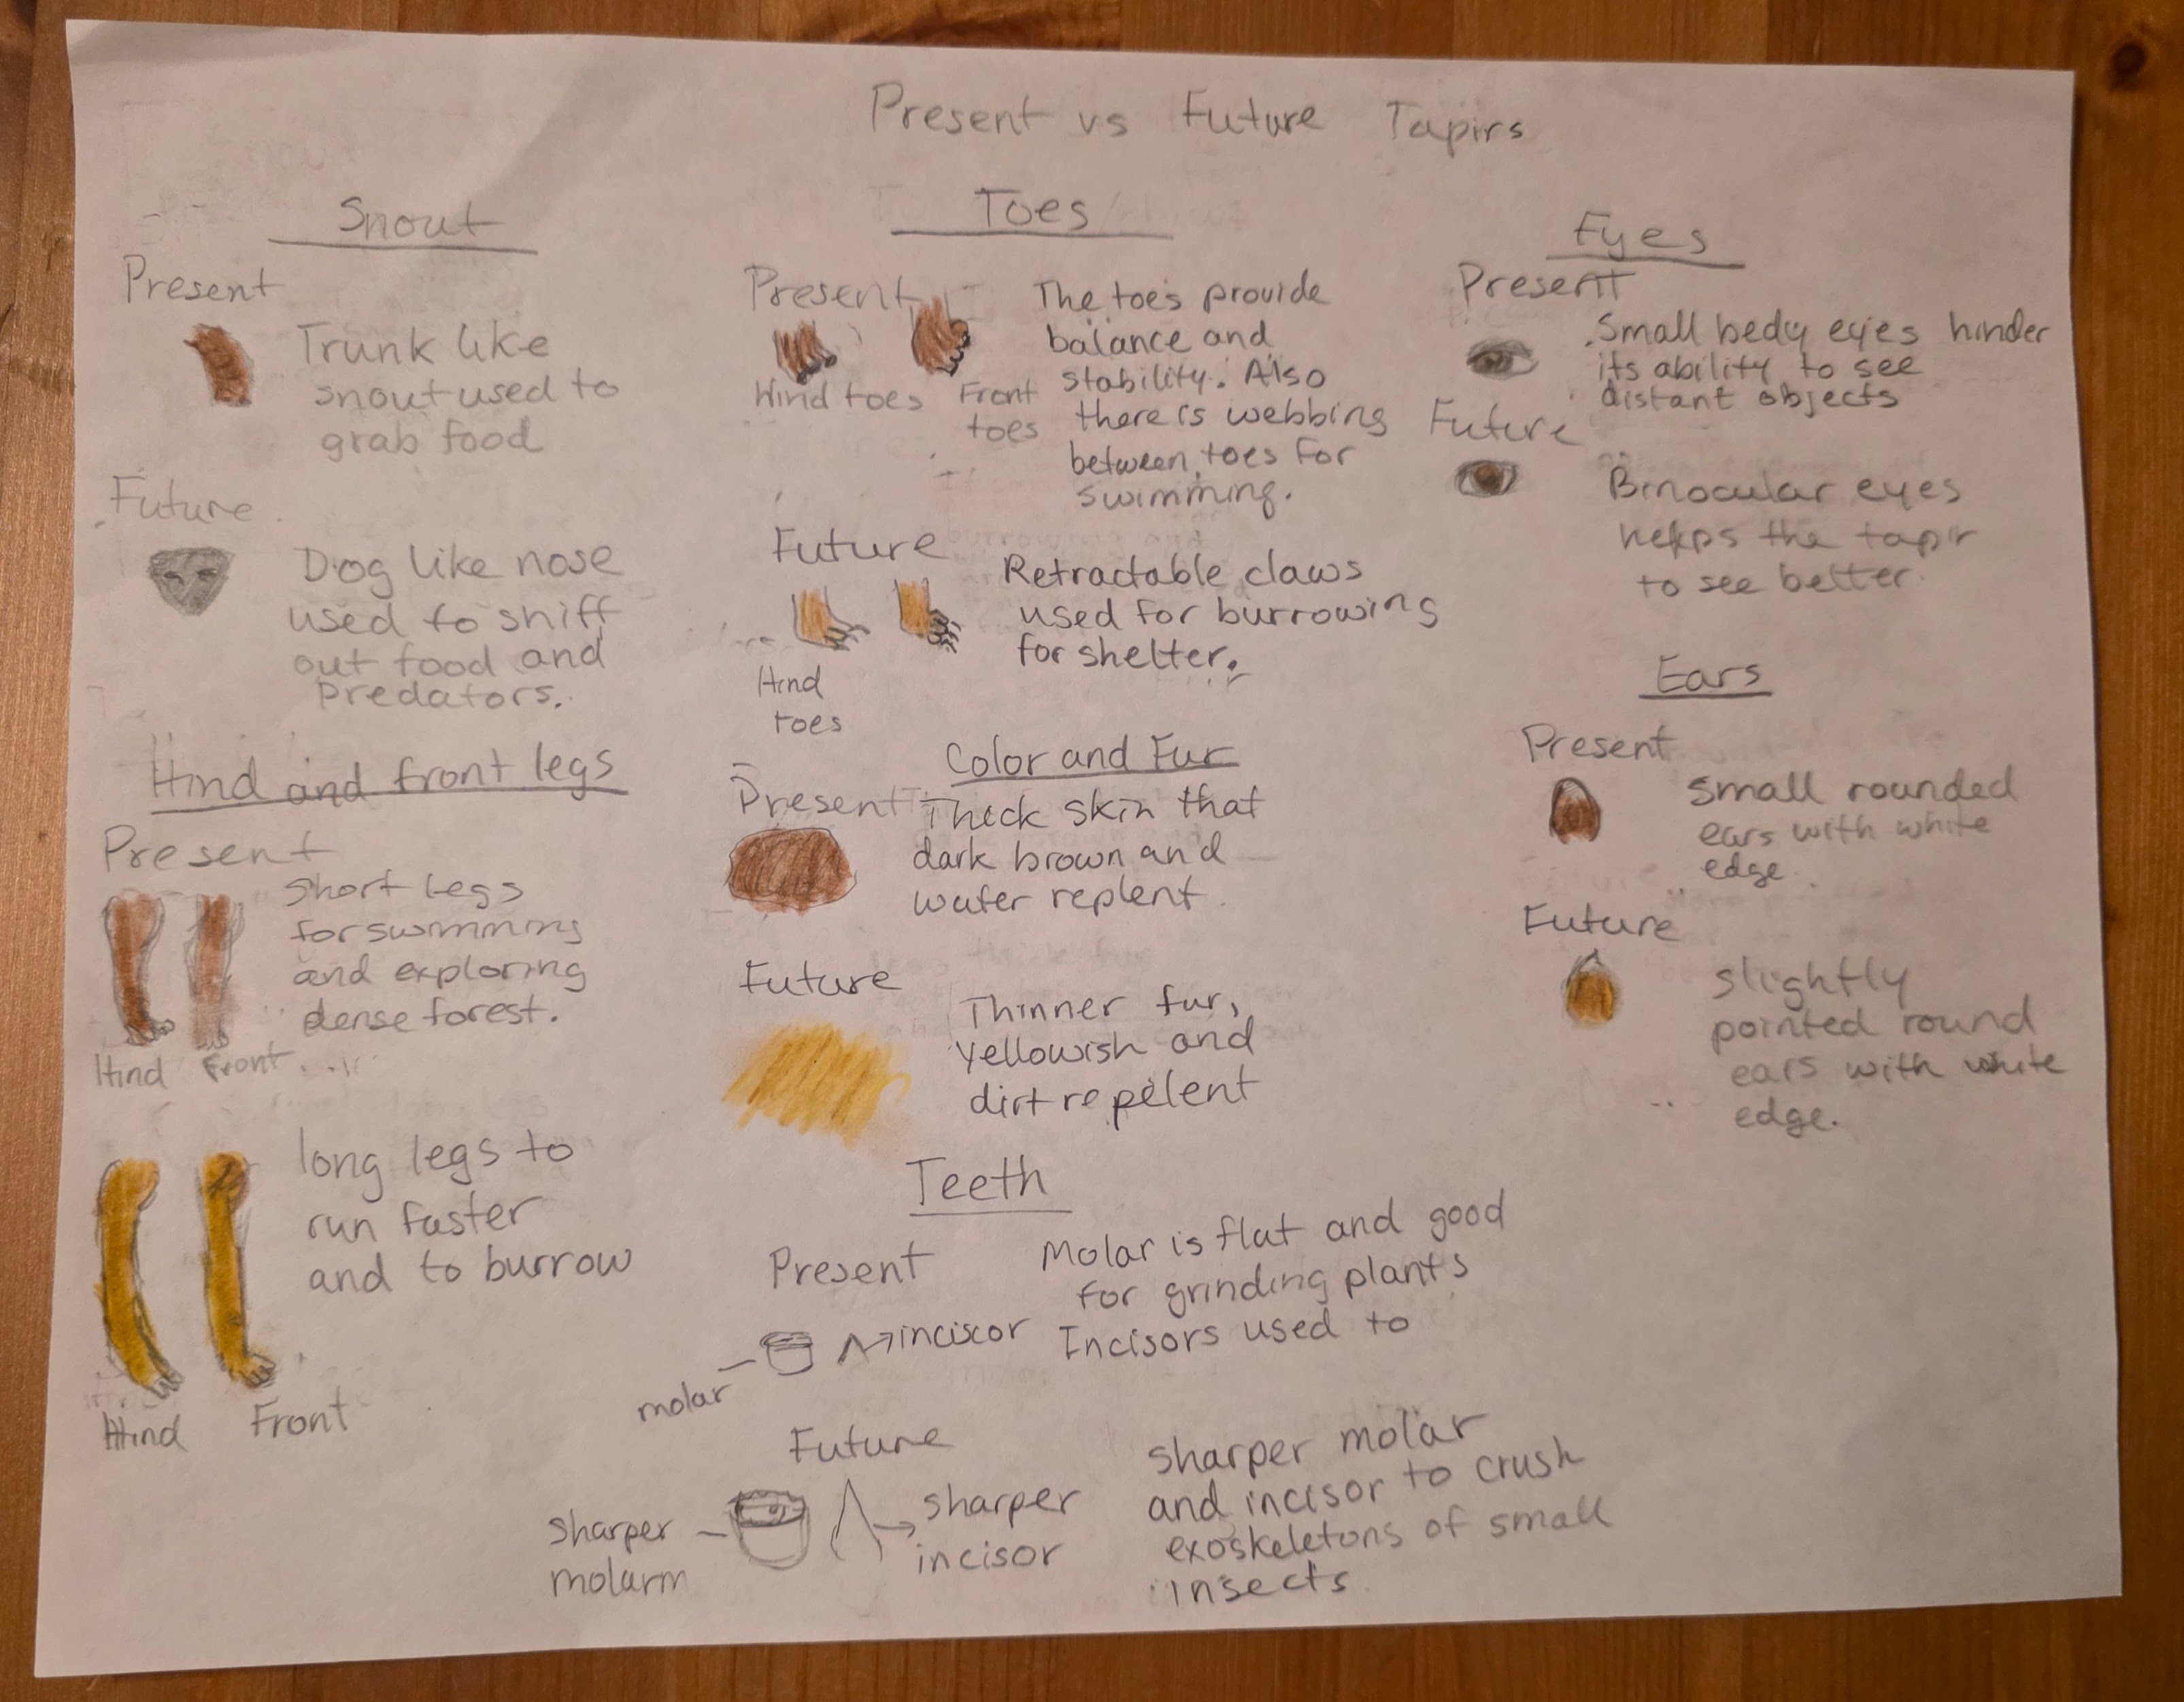 Present vs Future Tapirs
Snout
Present
Trunk like
snout used to
grab food
Future
Dog like nose
used to sniff
out food and
predators.
Hind and front legs
Present
Short legs
for swimming
and exploring
dense forest.
Hind Front
long legs to
run faster
and to burrow
Hind Front
Toes
Present
Hind toes
Front
toes
The toes provide
balance and
stability. Also
there is webbing
between toes for
swimming.
Future
Hind
toes
Retractable claws
used for burrowing
for shelter.
Color and Fur
Present
Thick skin that
dark brown and
water replent.
Future
Thinner fur,
yellowish and
dirt repelent
Teeth
Present
molar
inciscor
Molar is flat and good
for grinding plants
Incisors used to
Future
sharper
molarm
sharper
incisor
sharper molar
and incisor to crush
exoskeletons of small
insects.
Eyes
Present
Small bedy eyes hinder
its ability to see
distant objects
Future
Binocular eyes
helps the tapir
to see better.
Ears
Present
Small rounded
ears with white
edge.
Future
slightly
pointed round
ears with white
edge.